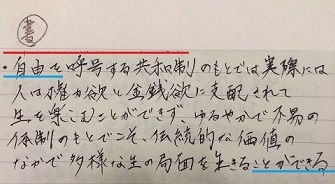 書
・自由を呼号する共和制のもとでは実際には
人は権力欲と金銭欲に支配されて
生を楽しむことができず、ゆるやかで不易の
体制のもとでこそ、伝統的な価値の
なかで多様な生の局面を生きることができる